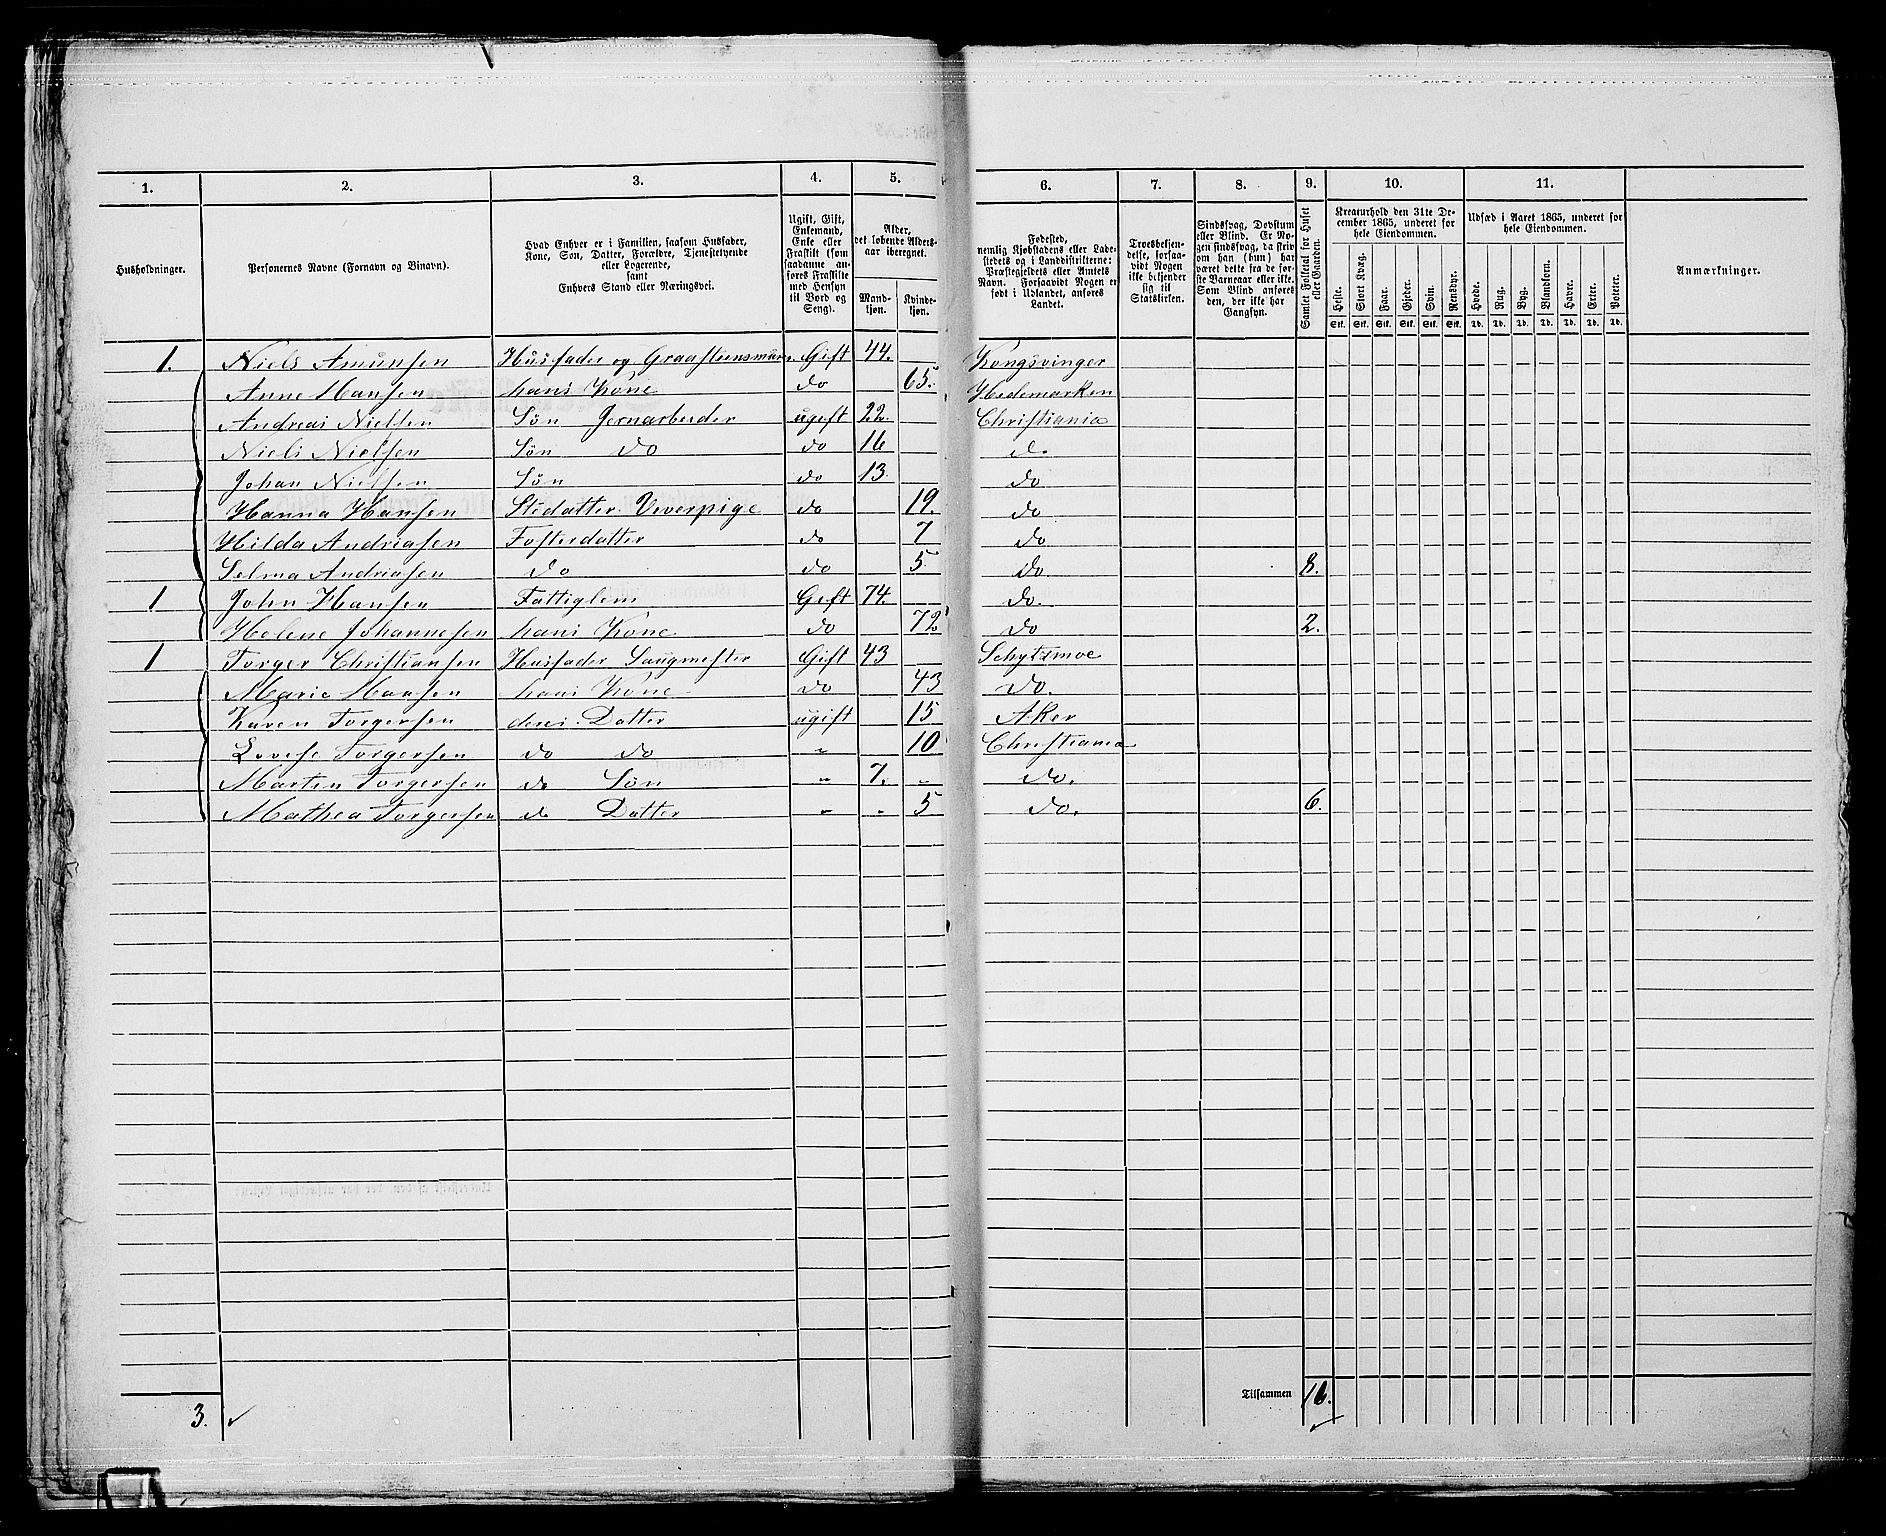 1. 2. 3. 4. 5. 6. 7. 8. 9. 10. 11.
Husholdninger.
Personernes Navne (Fornavn og Binavn).
Hvad Enhver er i Familien, saasom Husfader,
Kone, Søn, Datter, Forældre, Tjenestetyende
eller Logerende,
samt
Enhvers Stand eller Næringsvei.
Ugift, Gift,
Enkemand,
Enke eller
Fraskilt (som
saadanne an-
føres Fraskilte
med Hensyn
til Bord og
Seng).
Alder,
det løbende Alders-
aar iberegnet.
Mand-
kjøn.
Kvinde-
kjøn.
Fødested,
nemlig Kjøbstadens eller Lade-
stedets og i Landdistrikterne:
Præstegjeldets eller Amtets
Navn. Forsaavidt Nogen er
født i Udlandet, anføres
Landet.
Troesbekjen-
delse, forsaa-
vidt Nogen
ikke bekjender
sig til
Statskirken.
Sindssvag, Døvstum
eller Blind. Er No-
gen sindssvag, da skriv
om han (hun) har
været dette fra de før-
ste Barneaar eller ikke.
Som Blind anføres
den, der ikke har
Gangsyn.
Samlet Folketal for Huset
eller Gaarden.
Kreaturhold den 31te De-
cember 1865, underet for
hele Eiendommen.
Heste. Stort Kvæg. Faar. Gjeder. Svin. Rensdyr.
Stk. Stk. Stk. Stk. Stk. Stk.
Udsæd i Aaret 1865, underet for
hele Eiendommen.
Hvede. Rug. Byg. Blandkorn. Havre. Erter. Poteter.
Td. Td. Td. Td. Td. Td. Td.
Anmærkninger.
1. Niels Amunsen Husfader og Graasteensmurer Gift 44. Kongsvinger
Anne Hansen hans Kone do 65. Hedemarken
Andreas Nielsen Søn Jernarbeider ugift 22. Christiania
Niels Nielsen Søn do do 16 do
Johan Nielsen Søn do 13. do
Hanna Hansen Stedatter Veverpige do 19. do
Hilda Andriasen Fosterdatter do 7 do
Selma Andriasen do do 5 do 8.
1 John Hansen Fattiglem Gift 74. do.
Helene Johannesen hans Kone do 72 do 2.
1 Torger Christiansen Husfader Saugmester Gift 43
Marie Hansen hans Kone do 43 do.
Karen Torgersen deres Datter ugift 15 Aker
Lovise Torgersen do do " 10 Christiania
Martin Torgersen do Søn " 7. " do.
Mathea Torgersen do Datter " " 5 do. 6.
Tilsammen 16.
3.